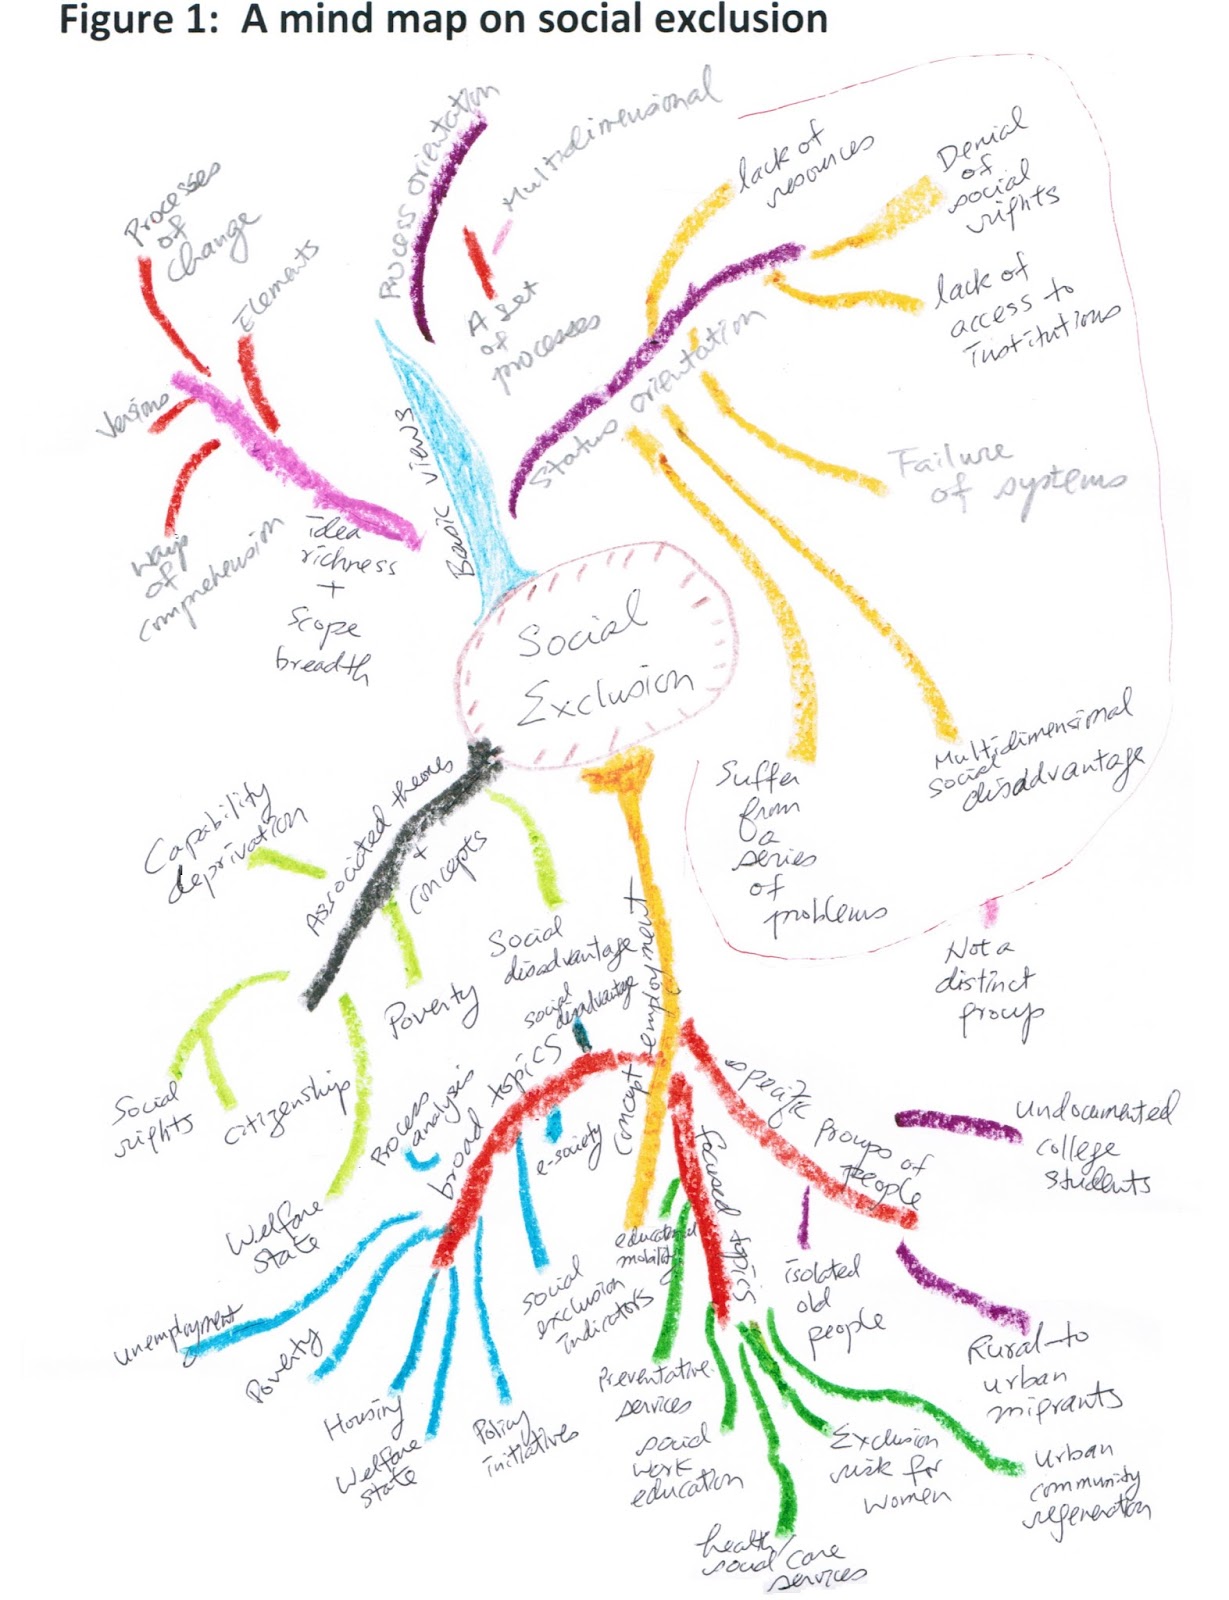 Figure 1:  A mind map on social exclusion
Process orientation
Multidimensional
A set
of
processes
Processes
of
change
Elements
Versions
Ways
of
comprehension
idea
richness
+
Scope
breadth
Basic views
Status orientation
lack of
resources
Denial
of
social
rights
lack of
access to
institutions
Failure
of systems
Multidimensional
social
disadvantage
Suffer
from
a
series
of
problems
Not a
distinct
group
Social
Exclusion
Associated theories
+
concepts
Capability
deprivation
Social
disadvantage
Poverty
Social
rights
citizenship
Welfare
state
concept employment
broad topics
social
disadvantage
Process
analysis
e-society
social
exclusion
indicators
unemployment
Poverty
Housing
Welfare
state
Policy
initiatives
focused topics
educational
mobility
Preventative
services
social
work
education
health/
social care
services
Exclusion
risk for
women
urban
community
regeneration
specific groups of
people
undocumented
college
students
isolated
old
people
Rural-to
urban
migrants